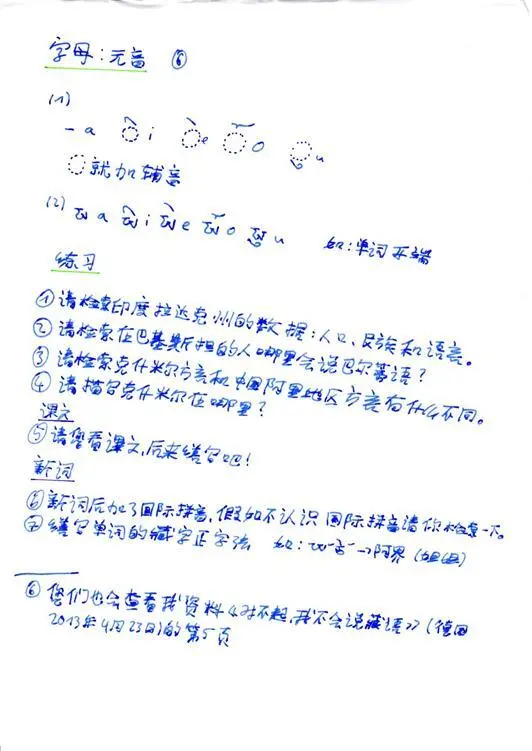 字母:元音 ⑥
(1)
- a ི i ེ e ོ o ུ u
◌就加辅音
(2) ཨ a ཨི i ཨེ e ཨོ o ཨུ u 如:单词开端
练习
① 请检索印度拉达克州的数据:人口、民族和语言。
② 请检索在巴基斯担的人口哪里会说巴尔蒂语?
③ 请检索克什米尔方言和中国阿里地区方言有什么不同。
④ 请描写克什米尔在哪里?
课文
⑤ 请您看课文,后来缮写吧!
新词
⑥ 新词后加了国际拼音,假如不认识国际拼音请你检索一下。
⑦ 缮写单词的藏字正字法 如: →阿界 (姐姐)
⑥ 您们也会查看我资料《对不起,我不会说藏语》(德国
2013年4月23日)的第5页